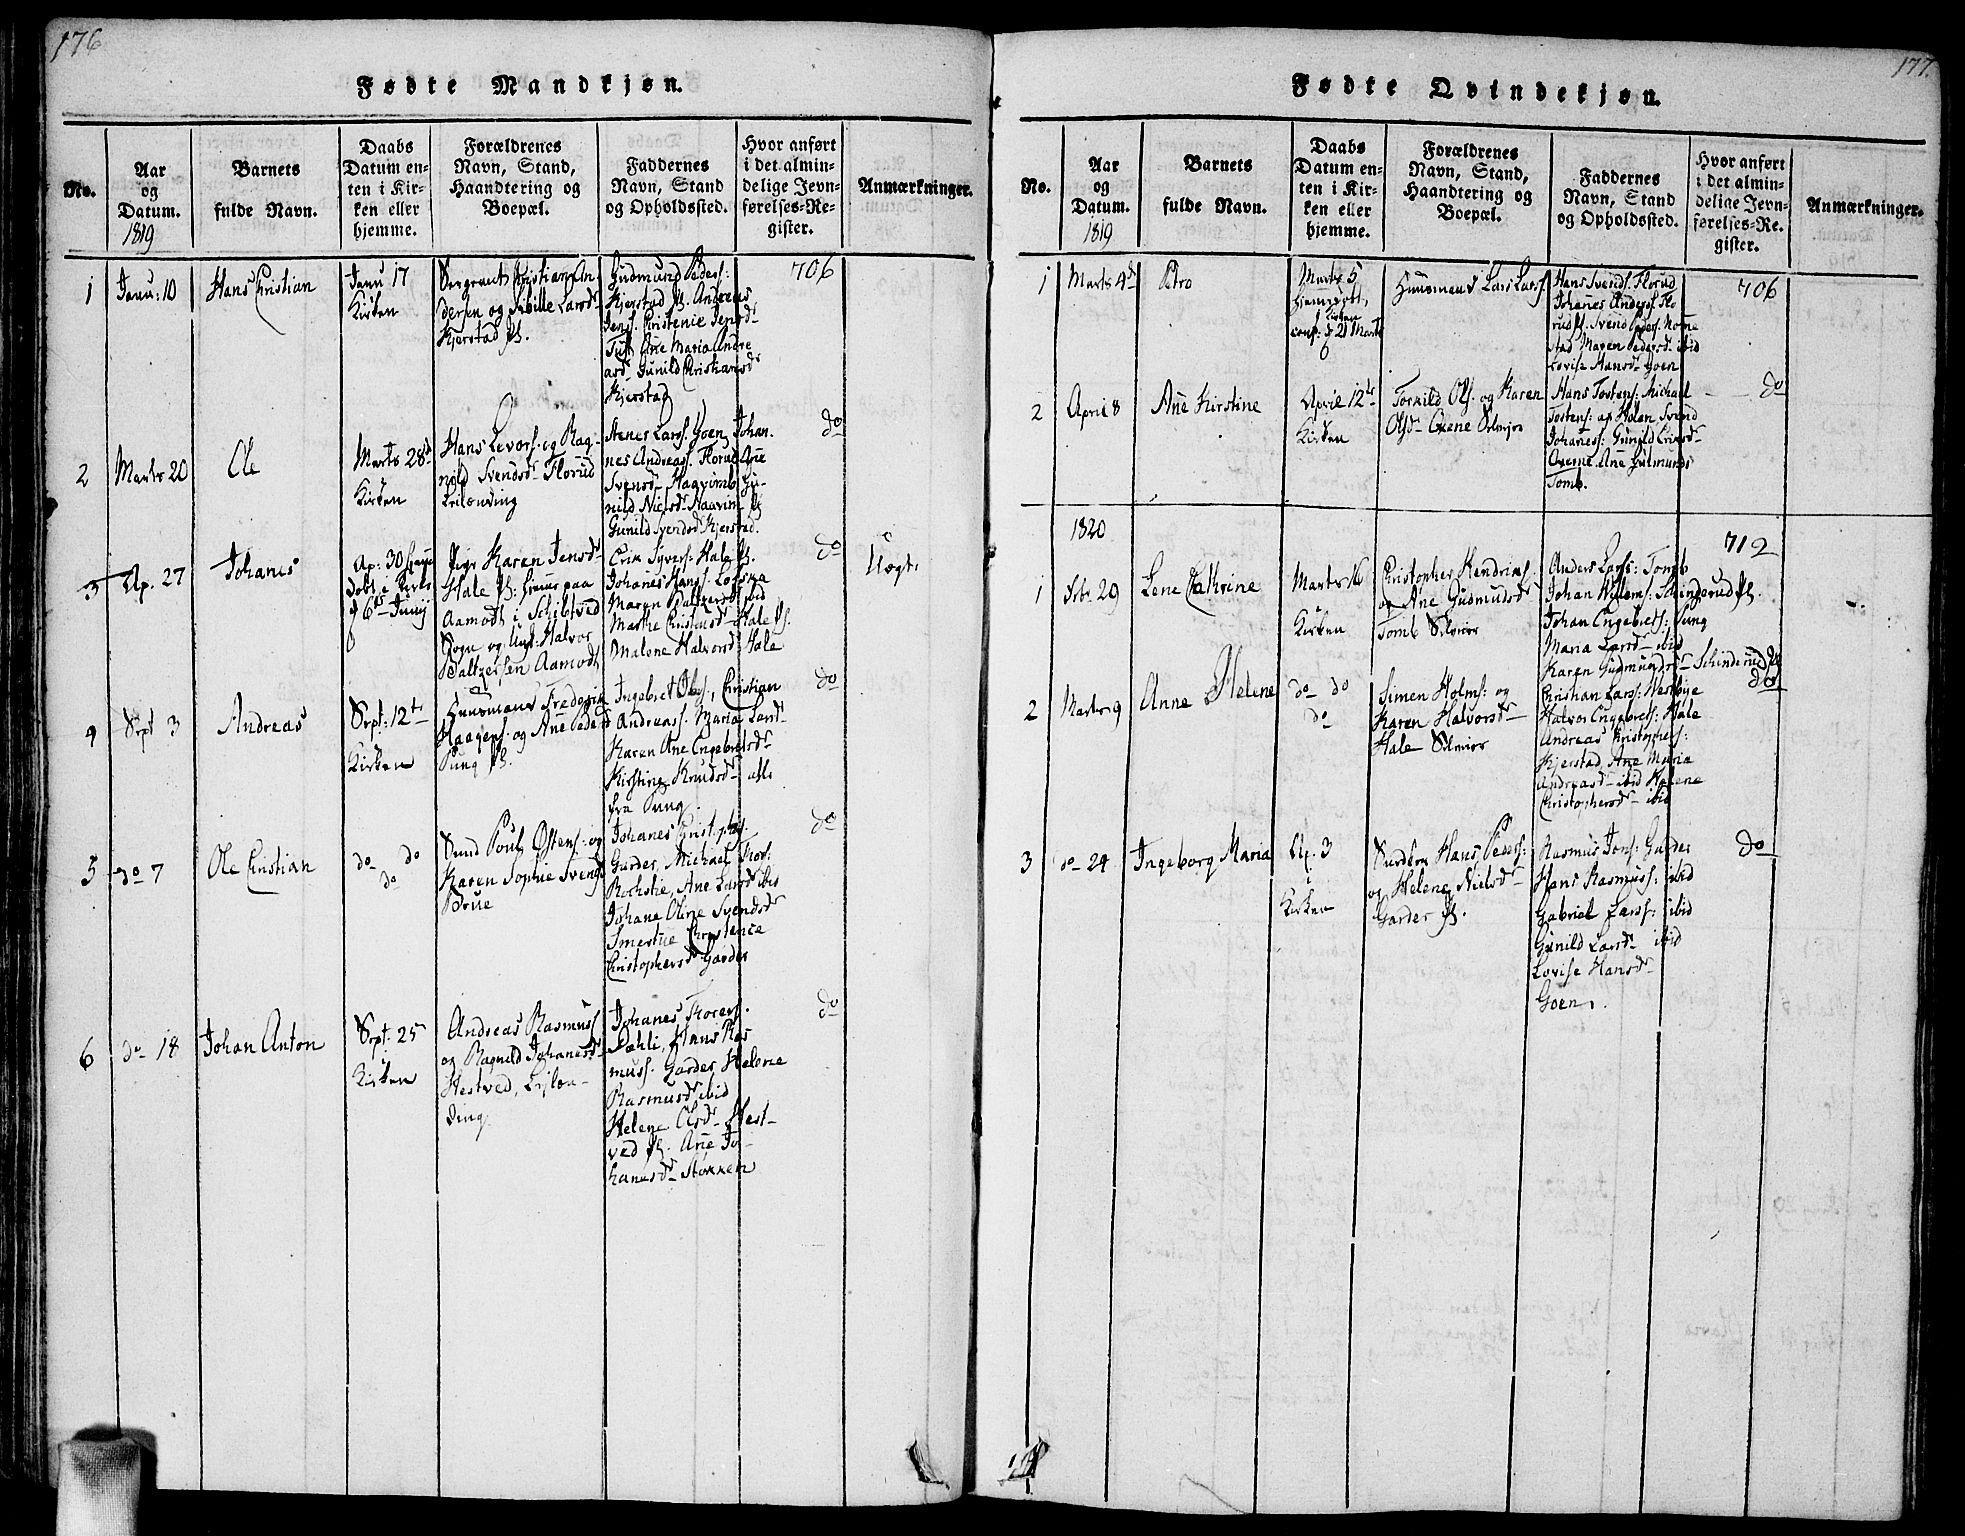 176
Fødte Mandkjøn.
No.
Aar
og
Datum.
1819
Barnets
fulde Navn.
Daabs
Datum en-
ten i Kir-
ken eller
hjemme.
Forældrenes
Navn, Stand,
Haandtering og
Boepæl.
Faddernes
Navn, Stand
og Opholdssted.
Hvor anført
i det almin-
delige Jevn-
førelses-Re-
gister.
Anmærkninger.
1
Janu: 10
Hans Christian
Janu 17
Kirken
Sergeant Christian An-
dersen og Sibille Larsd
Kjerstad
Gudmund Peders:
Kjerstad Andreas
Jens: Christenie Jensd
Ane Maria Andre
asd Gunild Christiansd
Kjerstad
706
2
Marts 20
Ole
Marts 28d
i
Kirken
Hans Levors: og Rag-
nild Svendsd Florud
Leilænding
Lars: Goen, Johan-
nes Andreas: Florud Ane
Svensd Haavimb Gu-
nild Nielsd Haavim
Gunild Svendsd Kjerstad.
do
3
Ap. 27
Johanes
Ap: 30 hjeme
døbt i Kirke
6te Junij
Pige Karen Jensd
Hale paa
Aamodt i Schibtved
Sogn og Halvor
Baltzersen Aamodt
Erik Syvers: Hale
Johanes Hans:
Maren Baltzersd ibid
Marthe Christensd Hale
Malene Halvorsd Hale
do
Uægte
4
Sept 3
Andreas
Sept: 12te
i
Kirken
Huusmand Frederik
Haagens: og Ane Pedersd
Pung
Ingebret Ibs:, Christian
Andreas: Maria Larsd
Karen Ane Engebretsd
Kirstine Knudsd alle
fra Pung
do
5
do 7
Ole Christian
do do
do
Poul Østens: og
Karen Sophie Svensd
Brue
Johanes Christophs.
Garder, Michael Thor:
Rochstie, Ane Larsd ibid
Johane Oline Svendsd
Smertue Christence
Christophersd Garder
do
6
do 18
Johan Anton
Sept: 25
i
Kirken
Andreas Rasmuss
og Ragnild Johanesd
Hestved, Leilæn-
ding
Johanes Thorers.
Dæhli, Hans Ras
muss. Garder Helene
Rasmusd ibid
Helene Olsd Hest-
ved Ane Jo-
hanesd Stokken
do
177.
Fødte Qvindekjøn.
No.
Aar
og
Datum.
1819
Barnets
fulde Navn.
Daabs
Datum en-
ten i Kir-
ken eller
hjemme.
Forældrenes
Navn, Stand,
Haandtering og
Boepæl.
Faddernes
Navn, Stand
og Opholdssted.
Hvor anført
i det almin-
delige Jevn-
førelses-Re-
gister.
Anmærkninger.
1
Marts 4de
Marts 5
hjemedøbt,
i Kirken
conf: d 21 Marts
Huusmand Lars Lars:
Hans Svends: Florud
Johanes Anders: Flo
rud Svend Peders:
Maren Pedersd ibid
Lovise Hansd Goen
706
2
April 8
Ane Kirstine
April 12te
i
Kirken
Torkild Ols. og Karen
Olsd Ovene Selveier
Hans Tostens: Michael
Tostens: Holen, Svend
Johanes: Gunild Eriksd
Overne Ane Gulmunds
Tomb.
do
1820
1
Febr 29
Lene Cathrine
Marts 16
i
Kirken
Christopher Hendrichs:
og Ane Gudmudsd
Tomb Selveier
Anders Lars: Tomb
Johan Wilem: Schingerud
Johan Engebrets: Pung
Maria Larsd ibid
Karen Gudmundsd Schinderud
712
2
Marts 9
Anne Helene
do do
do
Simen Holms: og
Karen Halvorsd
Hale Selveier
Christian Lars: Westbye
Halvor Engebrets: Hale
Andreas Kristophers:
Kjerstad, Ane Maria
Andreasd ibid Helene
Christophersd ibid
do
3
do 24
Ingeborg Maria
Ap. 3
i
Kirken
Hans Peders:
og Helene Nielsd
Garder
Rasmus Jens: Garder
Hans Rasmuss: ibid
Gabriel Larss: ibid
Gunild Larsd ibid
Lovise Hansd
Goen.
do